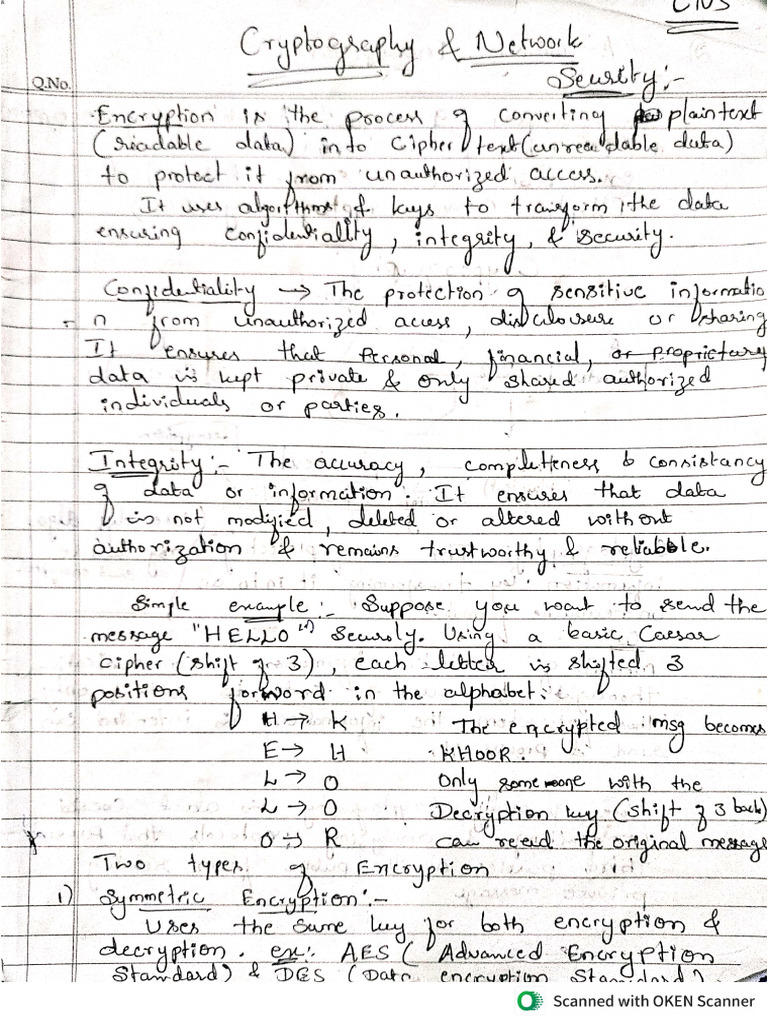 CNS
Cryptography & Network
Security :-
Q.No.
Encryption is the process of converting plaintext
(readable data) into Cipher text (unreadable data)
to protect it from unauthorized access.
It uses algorithms & keys to transform the data
ensuring confidentiality, integrity, & security.
Confidentiality → The protection of sensitive informatio
n from unauthorized access, disclousure or sharing
It ensures that Personal, financial, or Proprictary
data is kept private & only shared authorized
individuals or parties.
Integrity :- The accuracy, completteness & consistancy
of data or information. It ensures that data
is not modified, deleted or altered without
authorization & remains trustworthy & reliable.
Simple example :- Suppose you want to send the
message "HELLO" Securly. Using a basic Caesar
cipher (shift of 3), each letter is shifted 3
positions forword in the alphabet :
H → K The encrypted msg becomes
E → H KHOOR.
L → O Only someone with the
L → O Decryption key (shift of 3 back)
O → R can read the original message
Two types of Encryption
1) Symmetric Encryption :-
Uses the same key for both encryption &
decryption. ex:. AES (Advanced Encryption
Standard) & DES (Data encryption Standard).
Scanned with OKEN Scanner